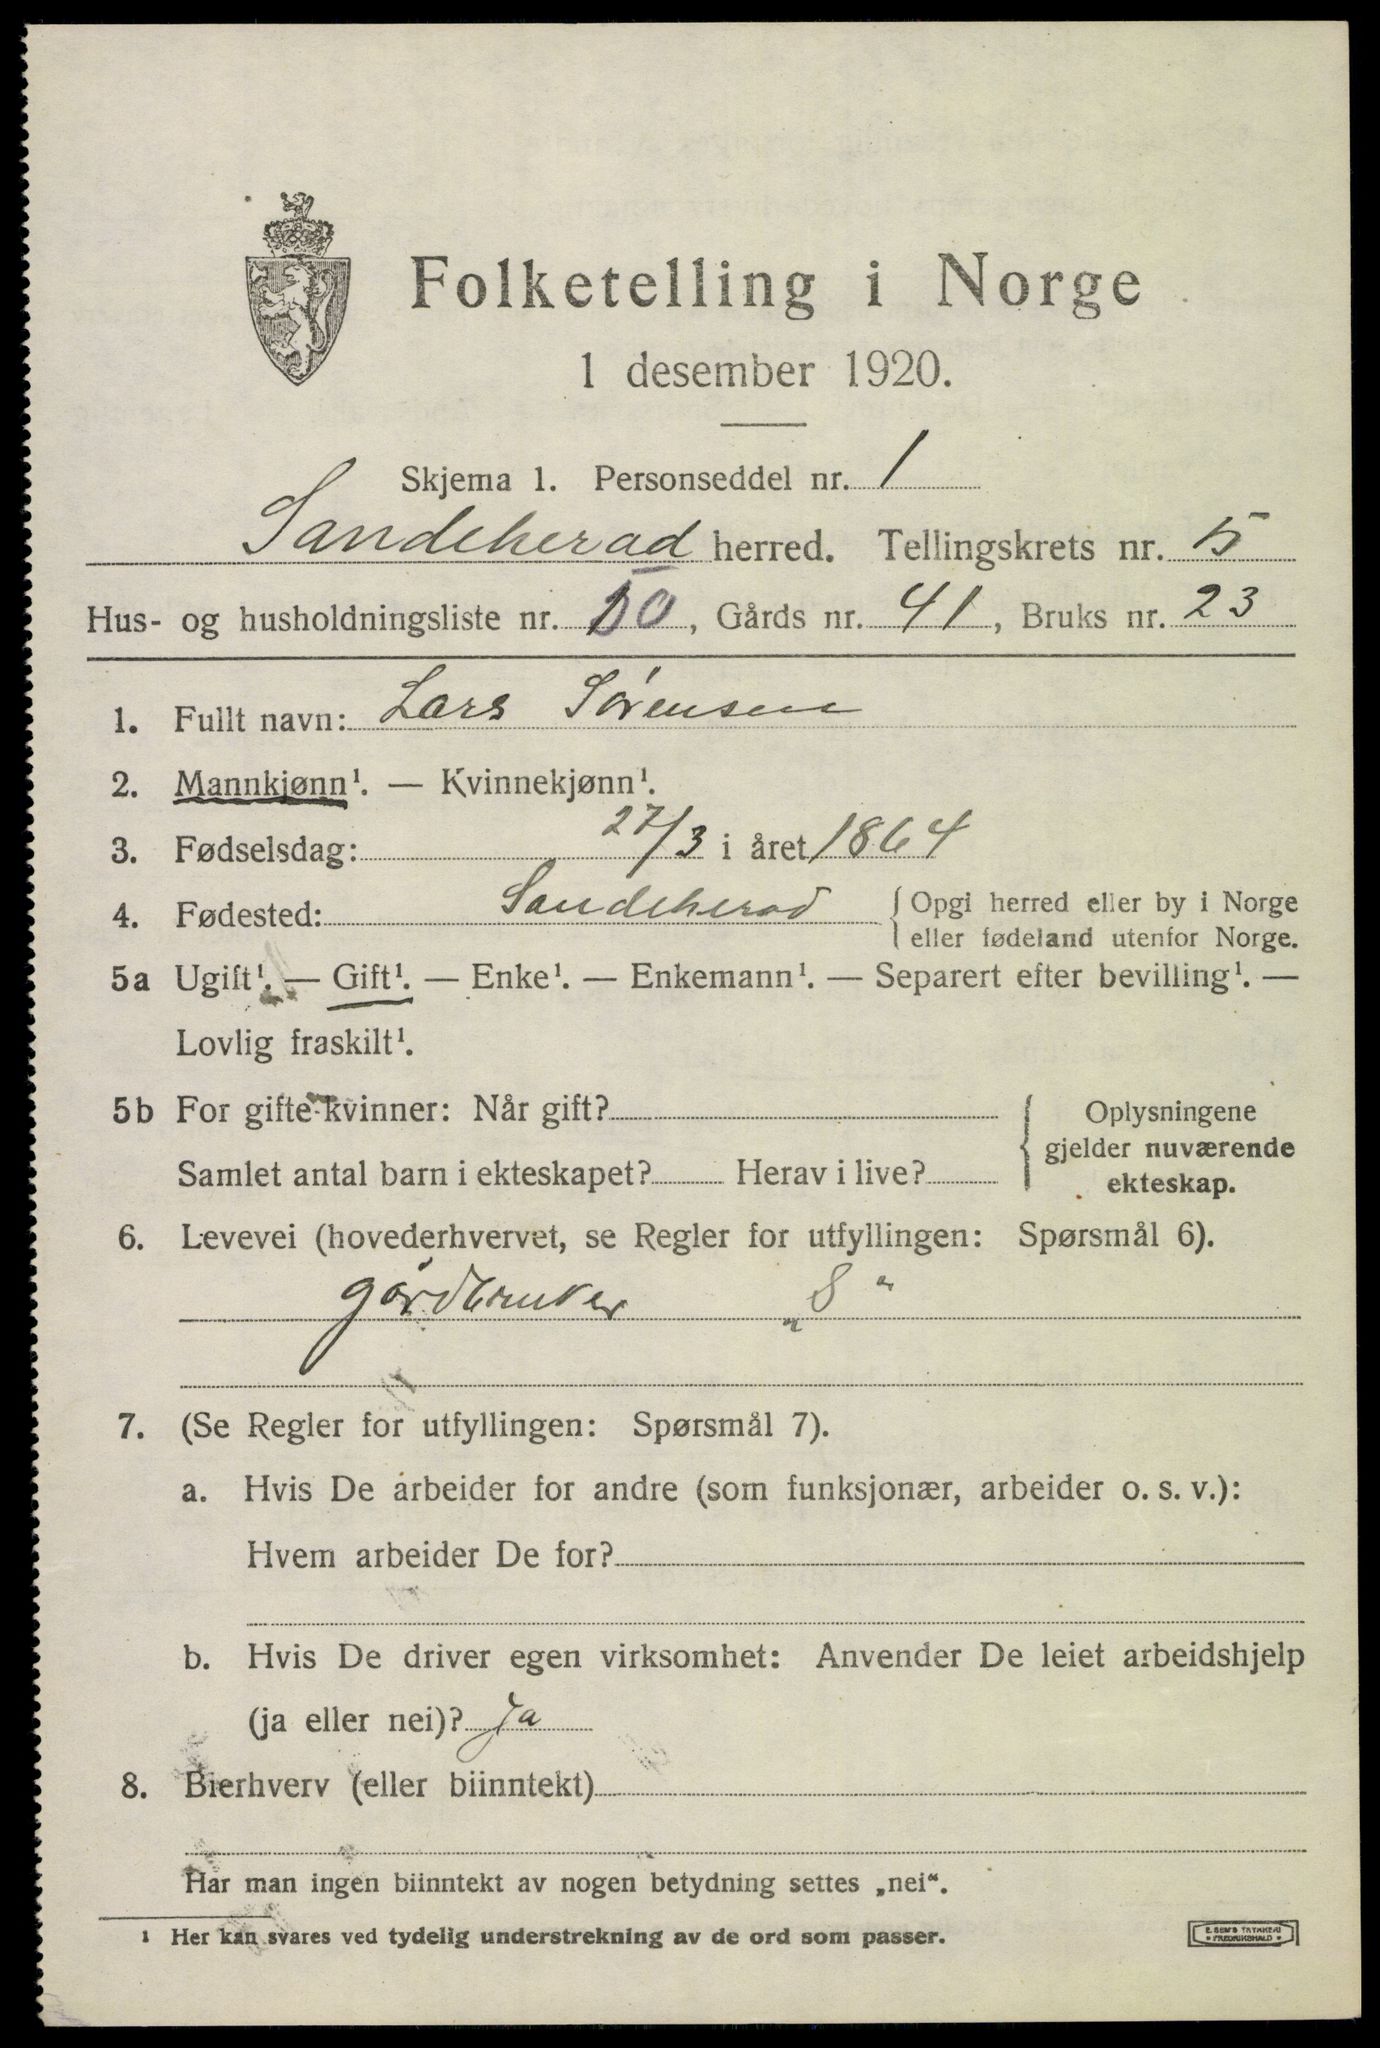 Folketelling i Norge
1 desember 1920.
Skjema 1. Personseddel nr. 1
Sandeherad herred. Tellingskrets nr. 15
Hus- og husholdningsliste nr. 50, Gårds nr. 41, Bruks nr. 23
1. Fullt navn: Lars Sørensen
2. Mannkjønn¹. — Kvinnekjønn¹.
3. Fødselsdag: 27/3 i året 1864
4. Fødested: Sandeherad { Opgi herred eller by i Norge
eller fødeland utenfor Norge.
5a Ugift¹. — Gift¹. — Enke¹. — Enkemann¹. — Separert efter bevilling¹. —
Lovlig fraskilt¹.
5b For gifte kvinner: Når gift?
Samlet antal barn i ekteskapet? Herav i live?
{ Oplysningene
gjelder nuværende
ekteskap.
6. Levevei (hovederhvervet, se Regler for utfyllingen: Spørsmål 6).
gårdbruker „S“
7. (Se Regler for utfyllingen: Spørsmål 7).
a. Hvis De arbeider for andre (som funksjonær, arbeider o. s. v.):
Hvem arbeider De for?
b. Hvis De driver egen virksomhet: Anvender De leiet arbeidshjelp
(ja eller nei)? Ja
8. Bierhverv (eller biinntekt)
Har man ingen biinntekt av nogen betydning settes „nei“.
¹ Her kan svares ved tydelig understrekning av de ord som passer.
E. SEM'S TRYKKERI
* FREDRIKSHALD *